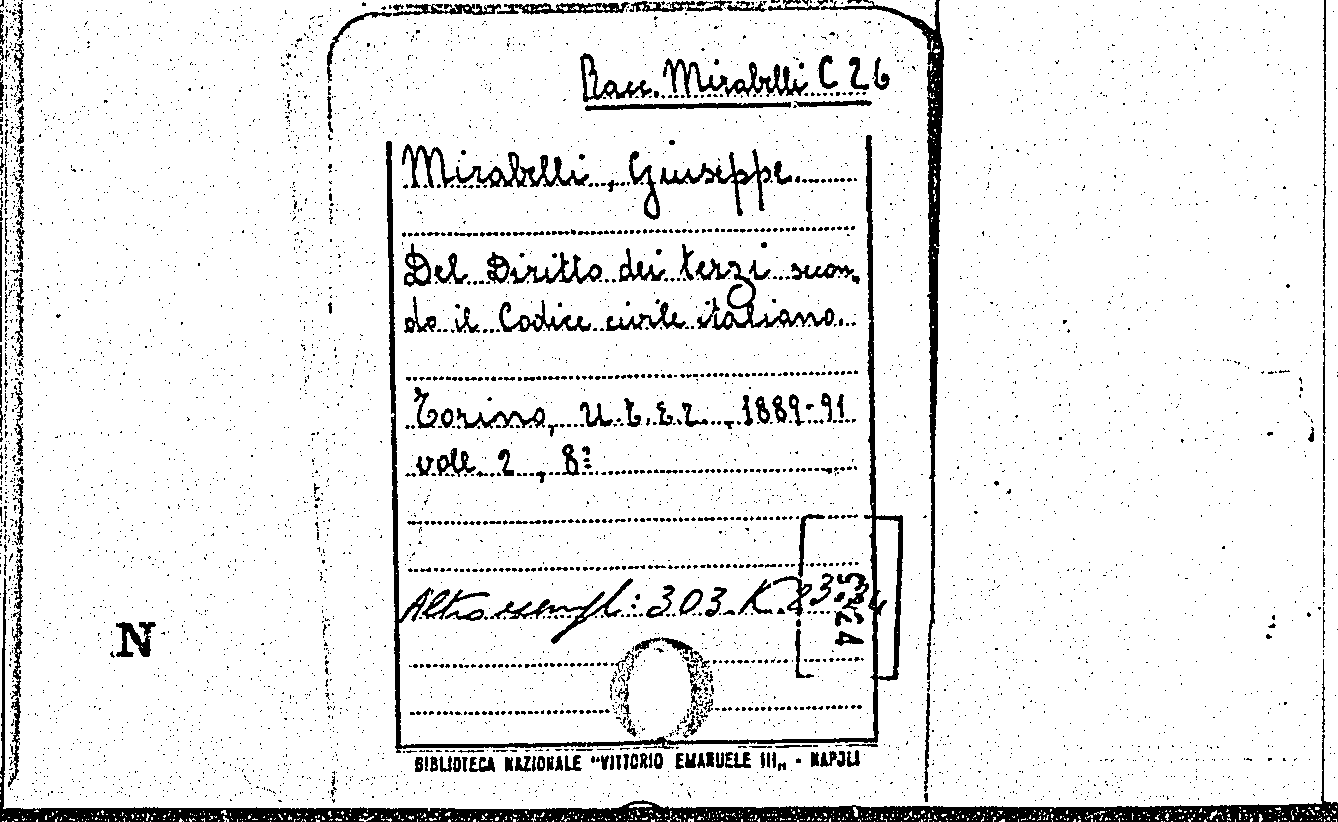 Racc. Mirabelli C 26
Mirabelli, Giuseppe.
Del Diritto dei terzi secon-
do il Codice civile italiano.
Torino, U.T.E.T., 1889-91
voll. 2, 8º
Altro esempl: 303. K.
N
BIBLIOTECA NAZIONALE "VITTORIO EMANUELE III„ - NAPOLI